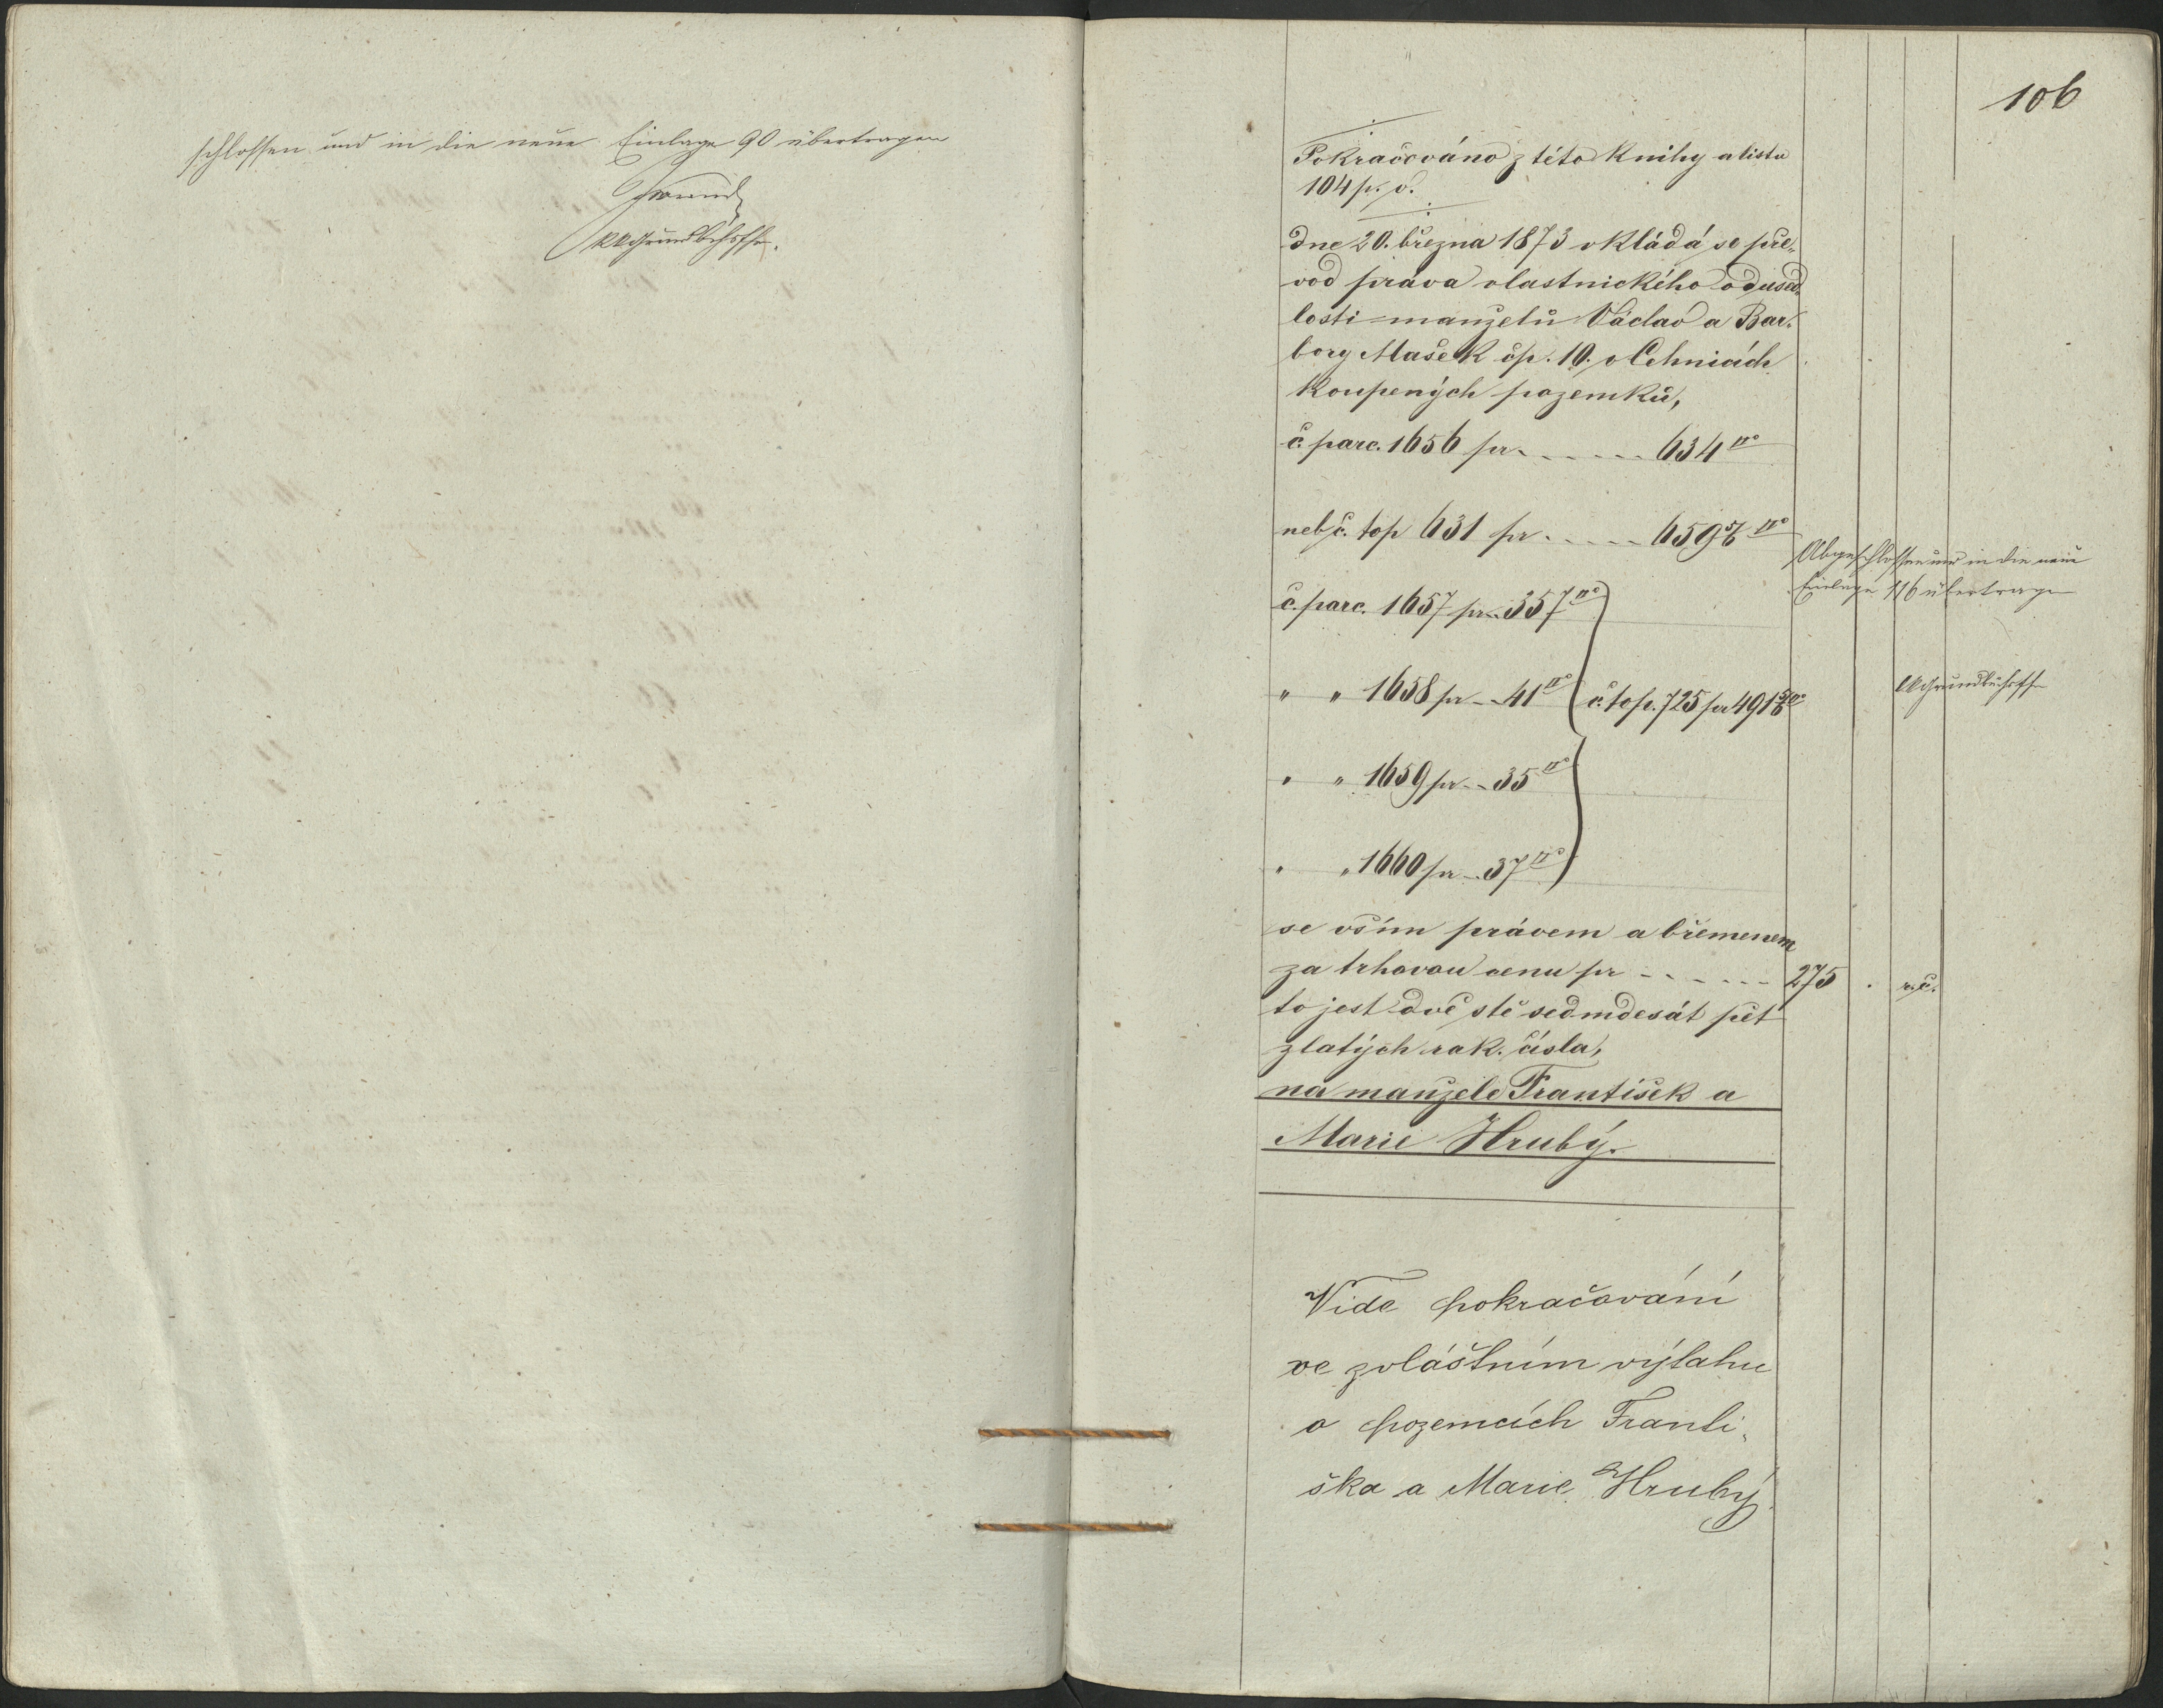 schlossen und in die neue Einlage 90 übertragen
KkGrundbchsffr.
106
Pokračováno z této knihy a listu
104 p. v.
Dne 20. března 1873 vkládá se pře-
vod práva vlastnického od used-
losti manželů Václav a Bar-
bory Mašek čp. 10. v Cehnicích
koupených pozemků,
č. parc. 1656 pr. ..... 634 □°
neb č. top 631 pr. ..... 659 5/6 □°
č. parc. 1657 pr. 357 □°
" " 1658 pr - 41 □° č. top. 725 pr 491 5/6 □°
" " 1659 pr - 35 □°
" " 1660 pr - 37 □°
Abgeschlossen und in die neue
Einlage 116 übertragen
Grundbuchsff
se vším právem a břemenem
za trhovou cenu pr ..... 275 . r. č.
to jest dvě stě sedmdesát pět
zlatých rak. čísla,
na manžele František a
Marie Hrubý.
Vide pokračování
ve zvláštním výtahu
o pozemcích Franti-
ška a Marie Hrubý